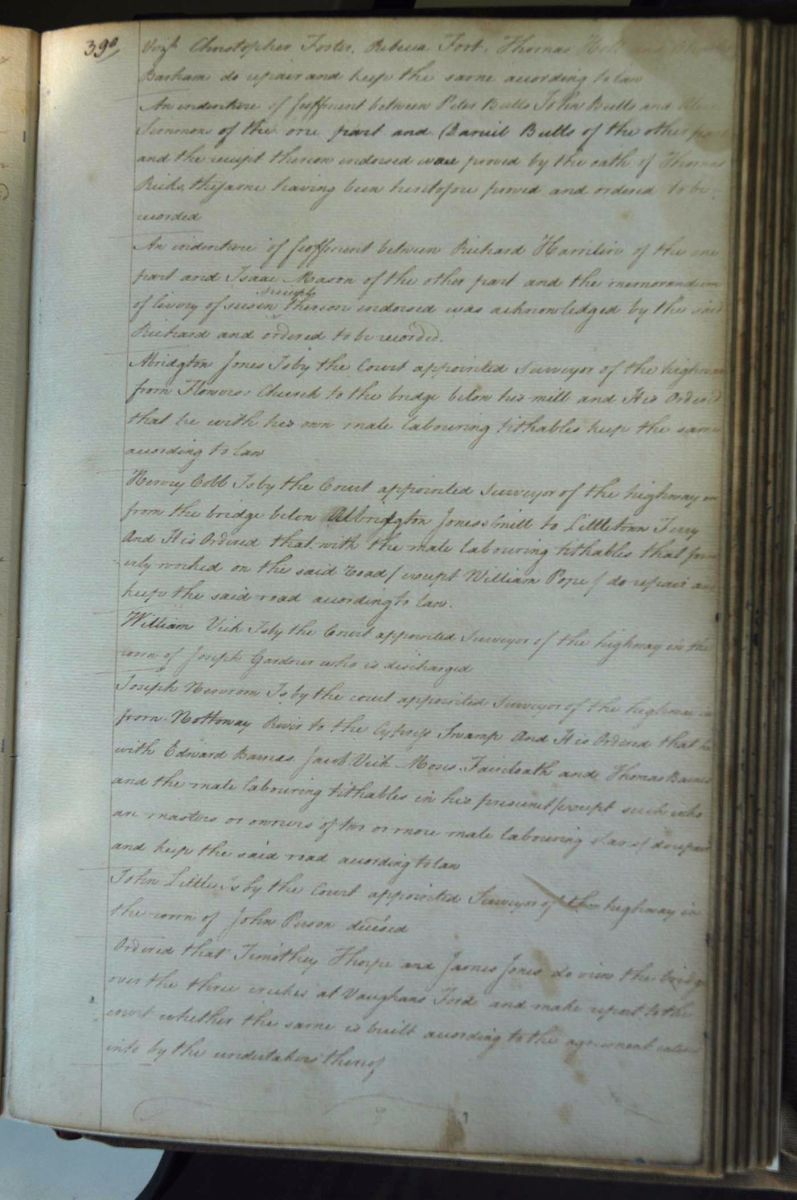 390
Vizt. Christopher Foster, Rebecca Fort, Thomas Holt and
Barham do repair and keep the same according to law
An indenture of feoffment between Peter Butts John Butts and
Simmons of the one part and Daniel Butts of the other part
and the receipt thereon indorsed was proved by the oath of Thomas
Ricks, the same having been heretofore proved and ordered to be
recorded
An indenture of feoffment between Richard Harrison of the one
part and Isaac Mason of the other part and the memorandum
receipt
of livery of seisin thereon indorsed was acknowledged by the said
Richard and ordered to be recorded.
Abridgton Jones Is by the Court appointed Surveyor of the highway
from Flowers Church to the bridge below his mill and It is Ordered
that he with his own male labouring tithables keep the same
according to law
Henry Cobb Is by the Court appointed Surveyor of the highway
from the bridge below Albridgton Joness mill to Littletown Ferry
And It is Ordered that with the male labouring tithables that form
erly worked on the said road / except William Pope / do repair and
keep the said road according to law.
William Vick Is by the Court appointed Surveyor of the highway in the
room of Joseph Gardner who is discharged
Joseph Newsom Is by the court appointed Surveyor of the highway
from Nottoway River to the Cypress Swamp And It is Ordered that he
with Edward Barnes Jacob Vick Moses Faircloath and Thomas Barnes
and the male labouring tithables in his precinct / except such who
are masters or owners of two or more male labouring slaves / do repair
and keep the said road according to law
John Little Is by the Court appointed Surveyor of the highway in
the room of John Person deceased
Ordered that Timothey Thorpe and James Jones do view the bridge
over the three creeks at Vaughans Ford and make report to the
court whether the same is built according to the agreement entered
into by the undertakers thereof